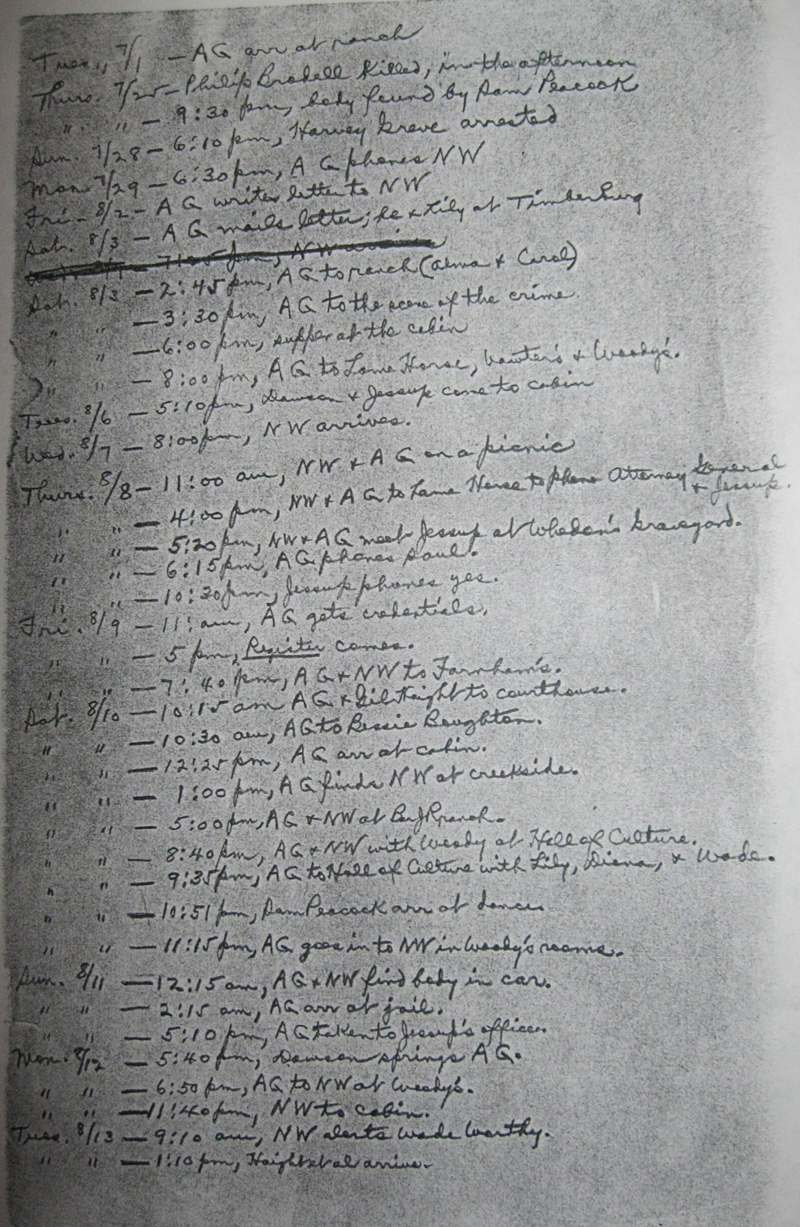 Tues., 7/1 — AG arr at ranch
Thurs. 7/25 — Philip Brodell killed, in the afternoon
" " — 9:30 pm, body found by Sam Peacock
Sun. 7/28 — 6:10 pm, Harvey Greve arrested
Mon. 7/29 — 6:30 pm, AG phones NW
Fri. 8/2 — AG writes letter to NW
Sat. 8/3 — AG mails letter; he & Lily at Timberburg
7:05 pm, NW arrives
Sat. 8/3 — 2:45 pm, AG to ranch (Alma & Carol)
" " — 3:30 pm, AG to the scene of the crime
" " — 6:00 pm, supper at the cabin
" " — 8:00 pm, AG to Lame Horse, Vawter's & Woody's.
Tues. 8/6 — 5:10 pm, Dawson & Jessup come to cabin
Wed. 8/7 — 8:00 pm, NW arrives.
Thurs. 8/8 — 11:00 am, NW & AG on a picnic
" " — 4:00 pm, NW & AG to Lame Horse to phone Attorney General & Jessup.
" " — 5:20 pm, NW & AG meet Jessup at Whedon's Graveyard.
" " — 6:15 pm, AG phones Saul.
" " — 10:30 pm, Jessup phones yes.
Fri. 8/9 — 11: am, AG gets credentials.
" " — 5 pm, Register comes.
" " — 7:40 pm, AG & NW to Farnham's.
Sat. 8/10 — 10:15 am AG & Gil Haight to courthouse.
" " — 10:30 am, AG to Bessie Boughton.
" " — 12:25 pm, AG arr at cabin.
" " — 1:00 pm, AG finds NW at creekside.
" " — 5:00 pm, AG & NW at Bar JR ranch.
" " — 8:40 pm, AG & NW with Woody at Hall of Culture.
" " — 9:35 pm, AG to Hall of Culture with Lily, Diana, & Wade.
" " — 10:51 pm, Sam Peacock arr at dance
" " — 11:15 pm, AG goes in to NW in Woody's rooms.
Sun. 8/11 — 12:15 am, AG & NW find body in car.
" " — 2:15 am, AG arr at jail.
" " — 5:10 pm, AG taken to Jessup's office.
Mon. 8/12 — 5:40 pm, Dawson springs AG.
" " — 6:50 pm, AG to NW at Woody's.
" " — 11:40 pm, NW to cabin.
Tues. 8/13 — 9:10 am, NW alerts Wade Worthy.
" " — 1:10 pm, Haight et al arrive.